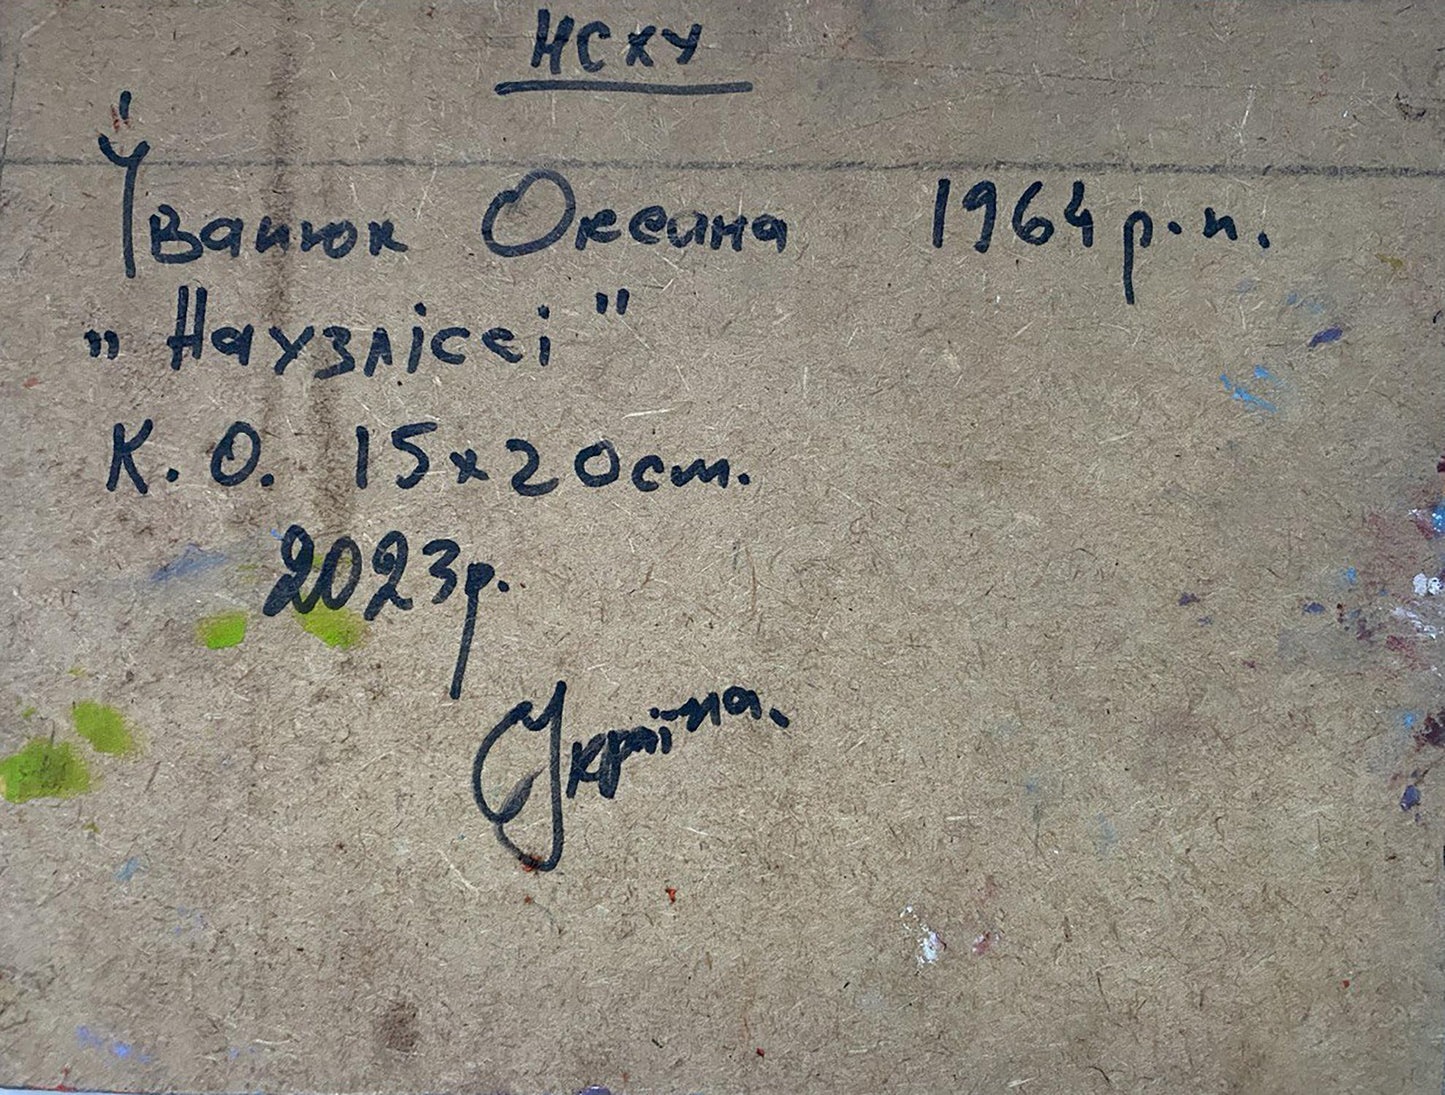 НСХУ
Іванюк Оксана 1964 р.н.
„Наузлісєі"
К. О. 15х20см.
2023р.
Україна.